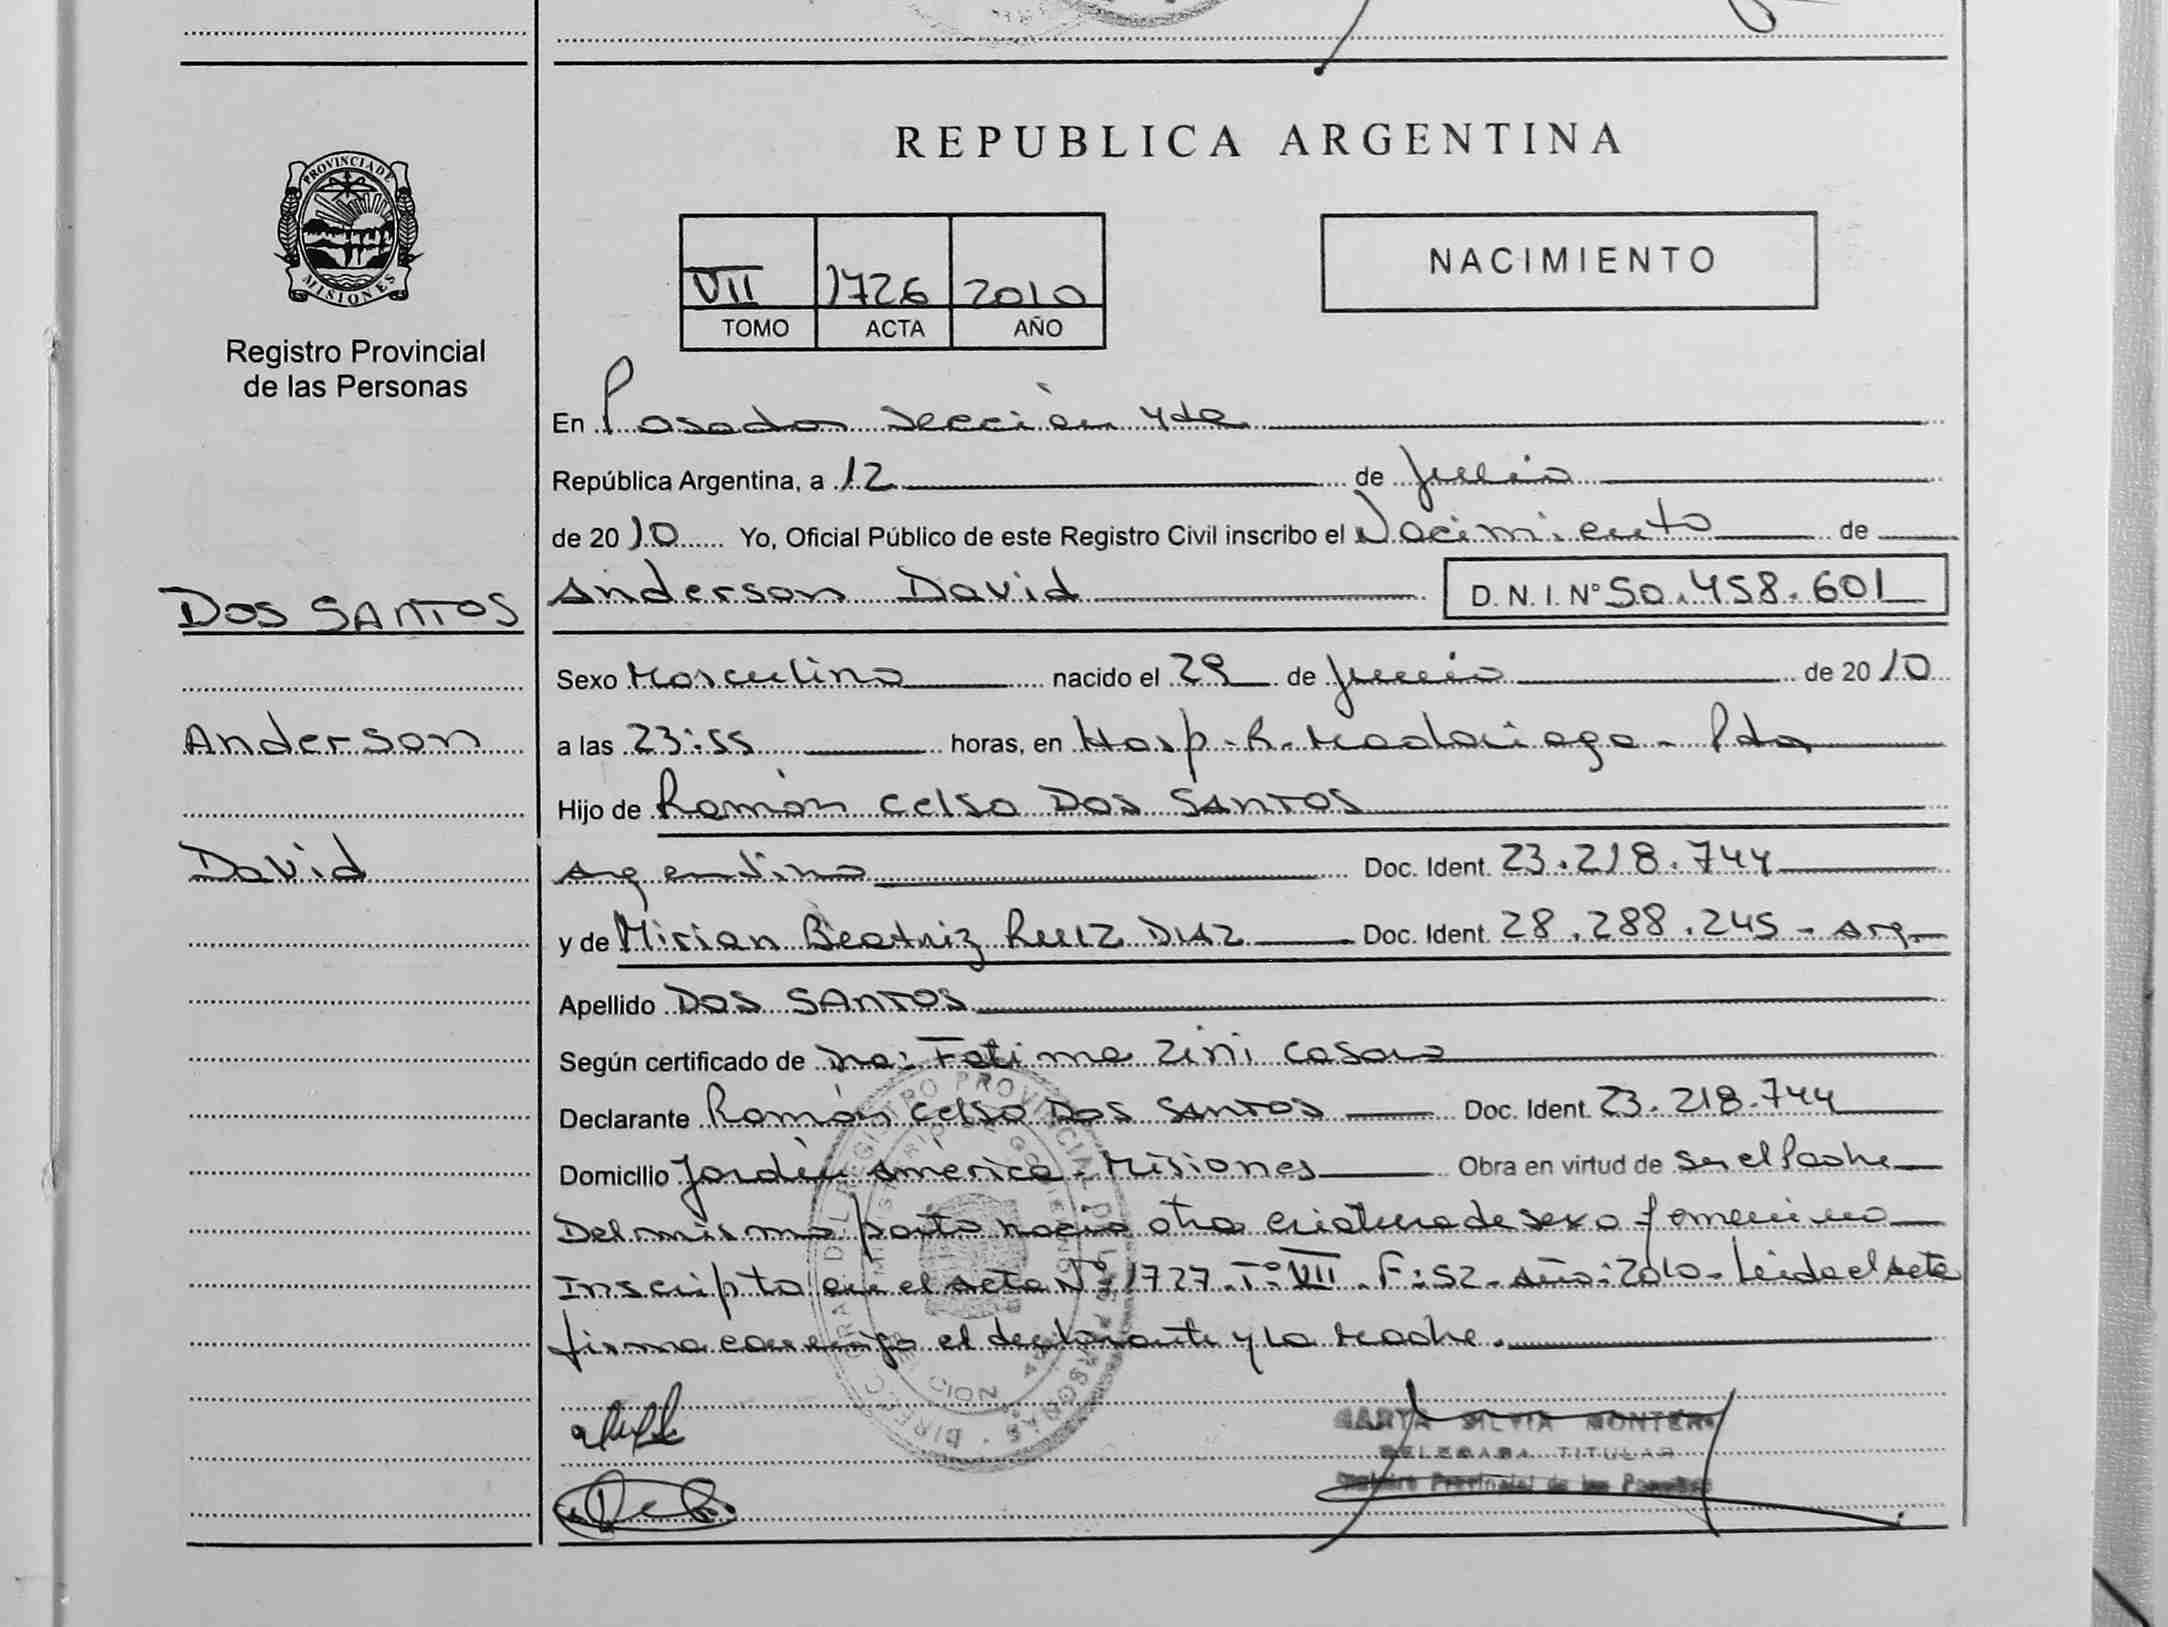 REPUBLICA ARGENTINA
PROVINCIA DE
MISIONES
Registro Provincial
de las Personas
VII 1726 2010
TOMO ACTA AÑO
NACIMIENTO
En Posadas Sección 4ta
República Argentina, a 12 de Julio
de 2010 Yo, Oficial Público de este Registro Civil inscribo el Nacimiento de
DOS SANTOS
Anderson David D. N. I. Nº 50.458.601
Sexo Masculino nacido el 29 de Junio de 2010
Anderson
a las 23:55 horas, en Hosp. R. Madariaga - Pdas
Hijo de Ramón Celso DOS SANTOS
David
Argentino Doc. Ident. 23.218.744
y de Mirian Beatriz RUIZ DIAZ Doc. Ident. 28.288.245 - Arg.
Apellido DOS SANTOS
Según certificado de Dra: Fatima Zini Casas
Declarante Ramón Celso DOS SANTOS Doc. Ident. 23.218.744
Domicilio Jardín América - Misiones Obra en virtud de ser el Padre
Del mismo parto nacio otra criatura de sexo femenino
Inscripta en el acta Nº 1727 Tº VII F: 52 - año: 2010 - Leida el acta
firma conmigo el declarante y la Madre.
MARTA SILVIA MONTERO
DELEGADA TITULAR
Registro Provincial de las Personas